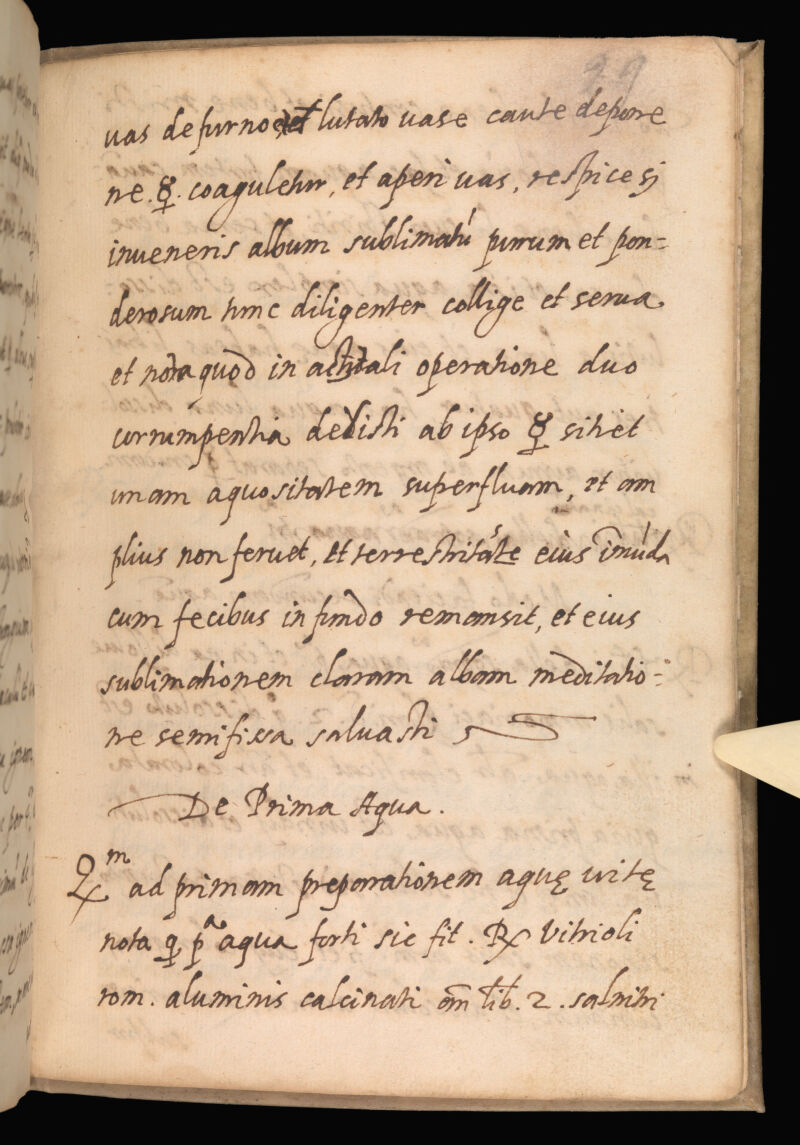 29
vas de furno et lutato vase caute depone
ne .☿. coaguletur, et aperi vas, respice si
inveneris album sublimatũ purum et pon=
derosum tunc diligenter collige et serva
et nota quod in actuali operatione duo
corrumpentia dedisti ab ipso ☿ sit et
unam aquositatem superfluam, et am
plius non fervet, et terrestritate eius ĩmũda
cum fecibus in fundo remansit, et eius
sublimationem claram albam meditatio=
ne semifissa salvasti
De Prima Aqua.
ad primam preparationem aquę vitę
nota ꝙ pª aqua forti sic fit. ℞ Vitrioli
rom. aluminis calcinati añ lib. 2. salnitri